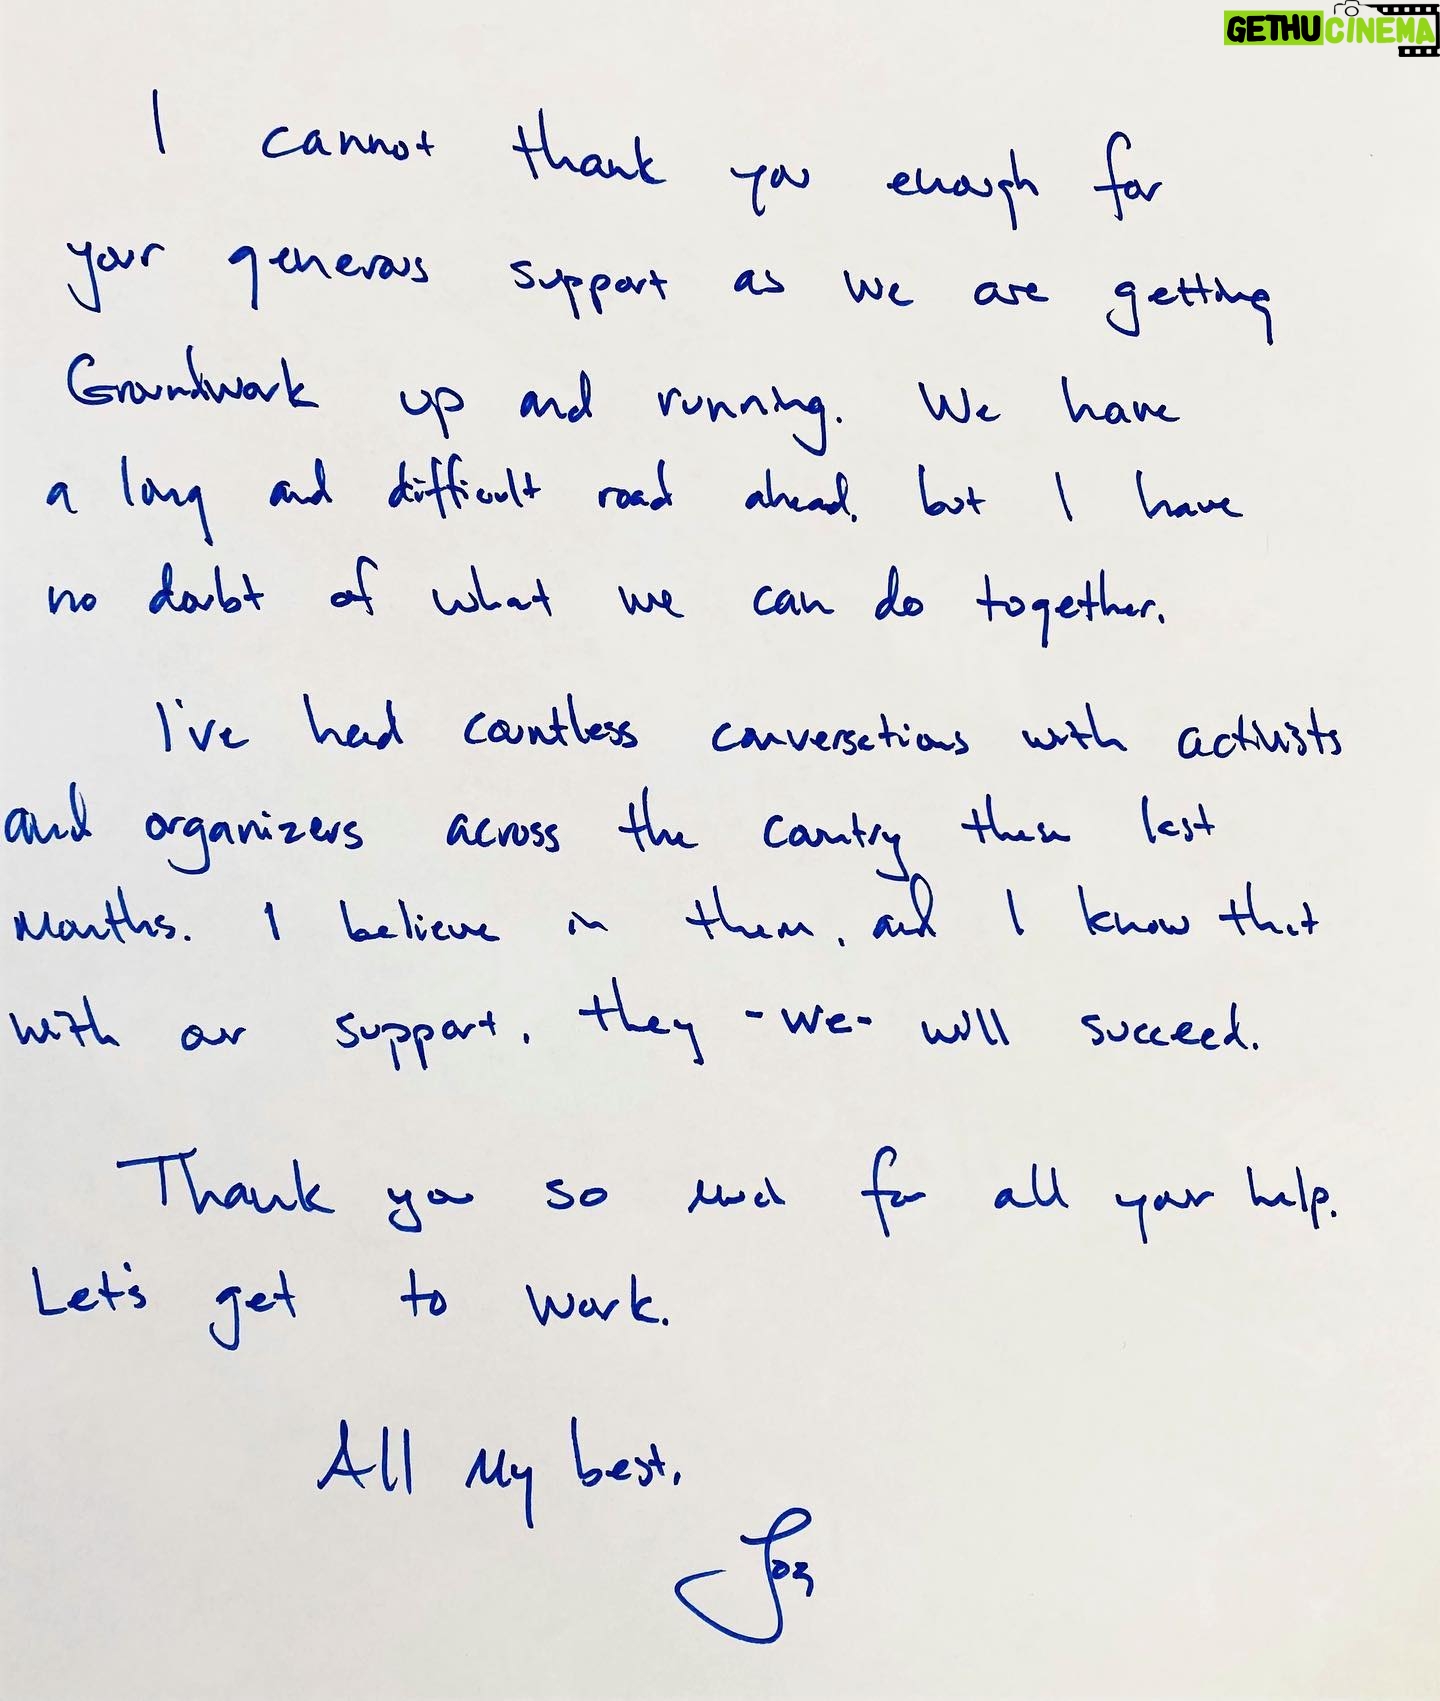 GETHUCINEMA
I cannot thank you enough for
your generous support as we are getting
Groundwork up and running. We have
a long and difficult road ahead, but I have
no doubt of what we can do together.
I've had countless conversations with activists
and organizers across the country these last
months. I believe in them, and I know that
with our support, they -we- will succeed.
Thank you so much for all your help.
Let's get to work.
All my best,